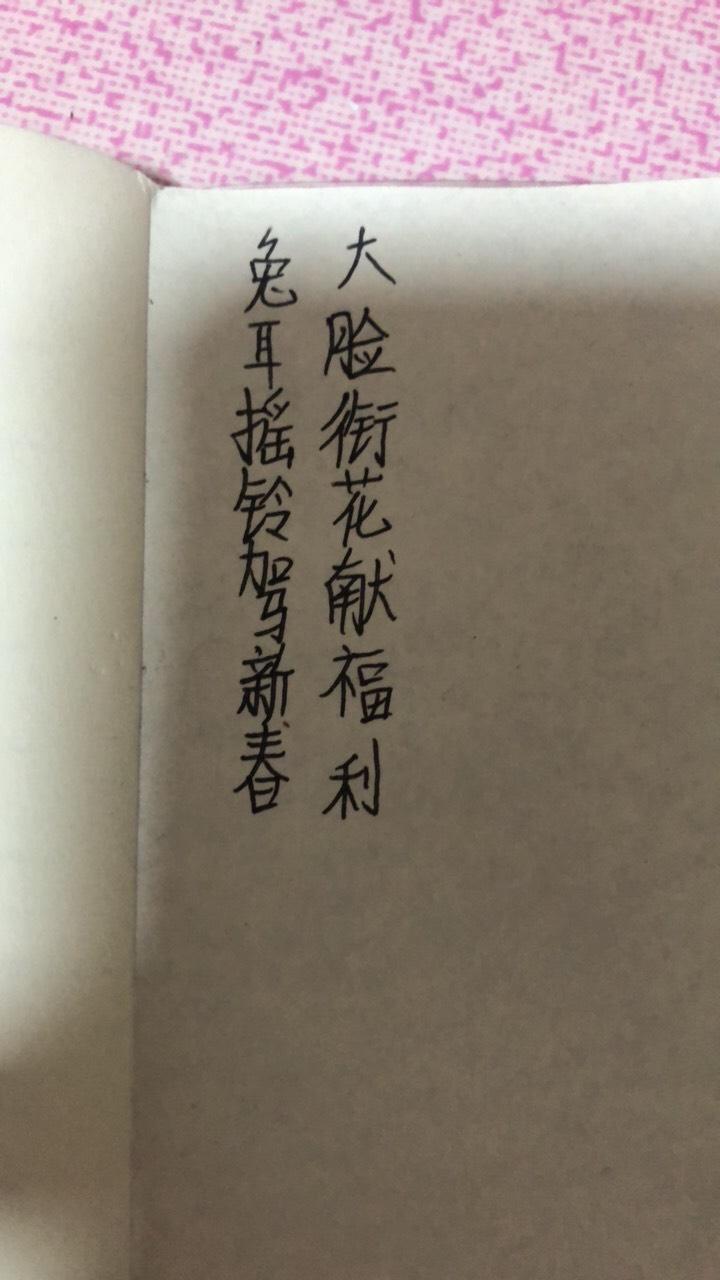 大脸衔花献福利
兔耳摇铃驾新春